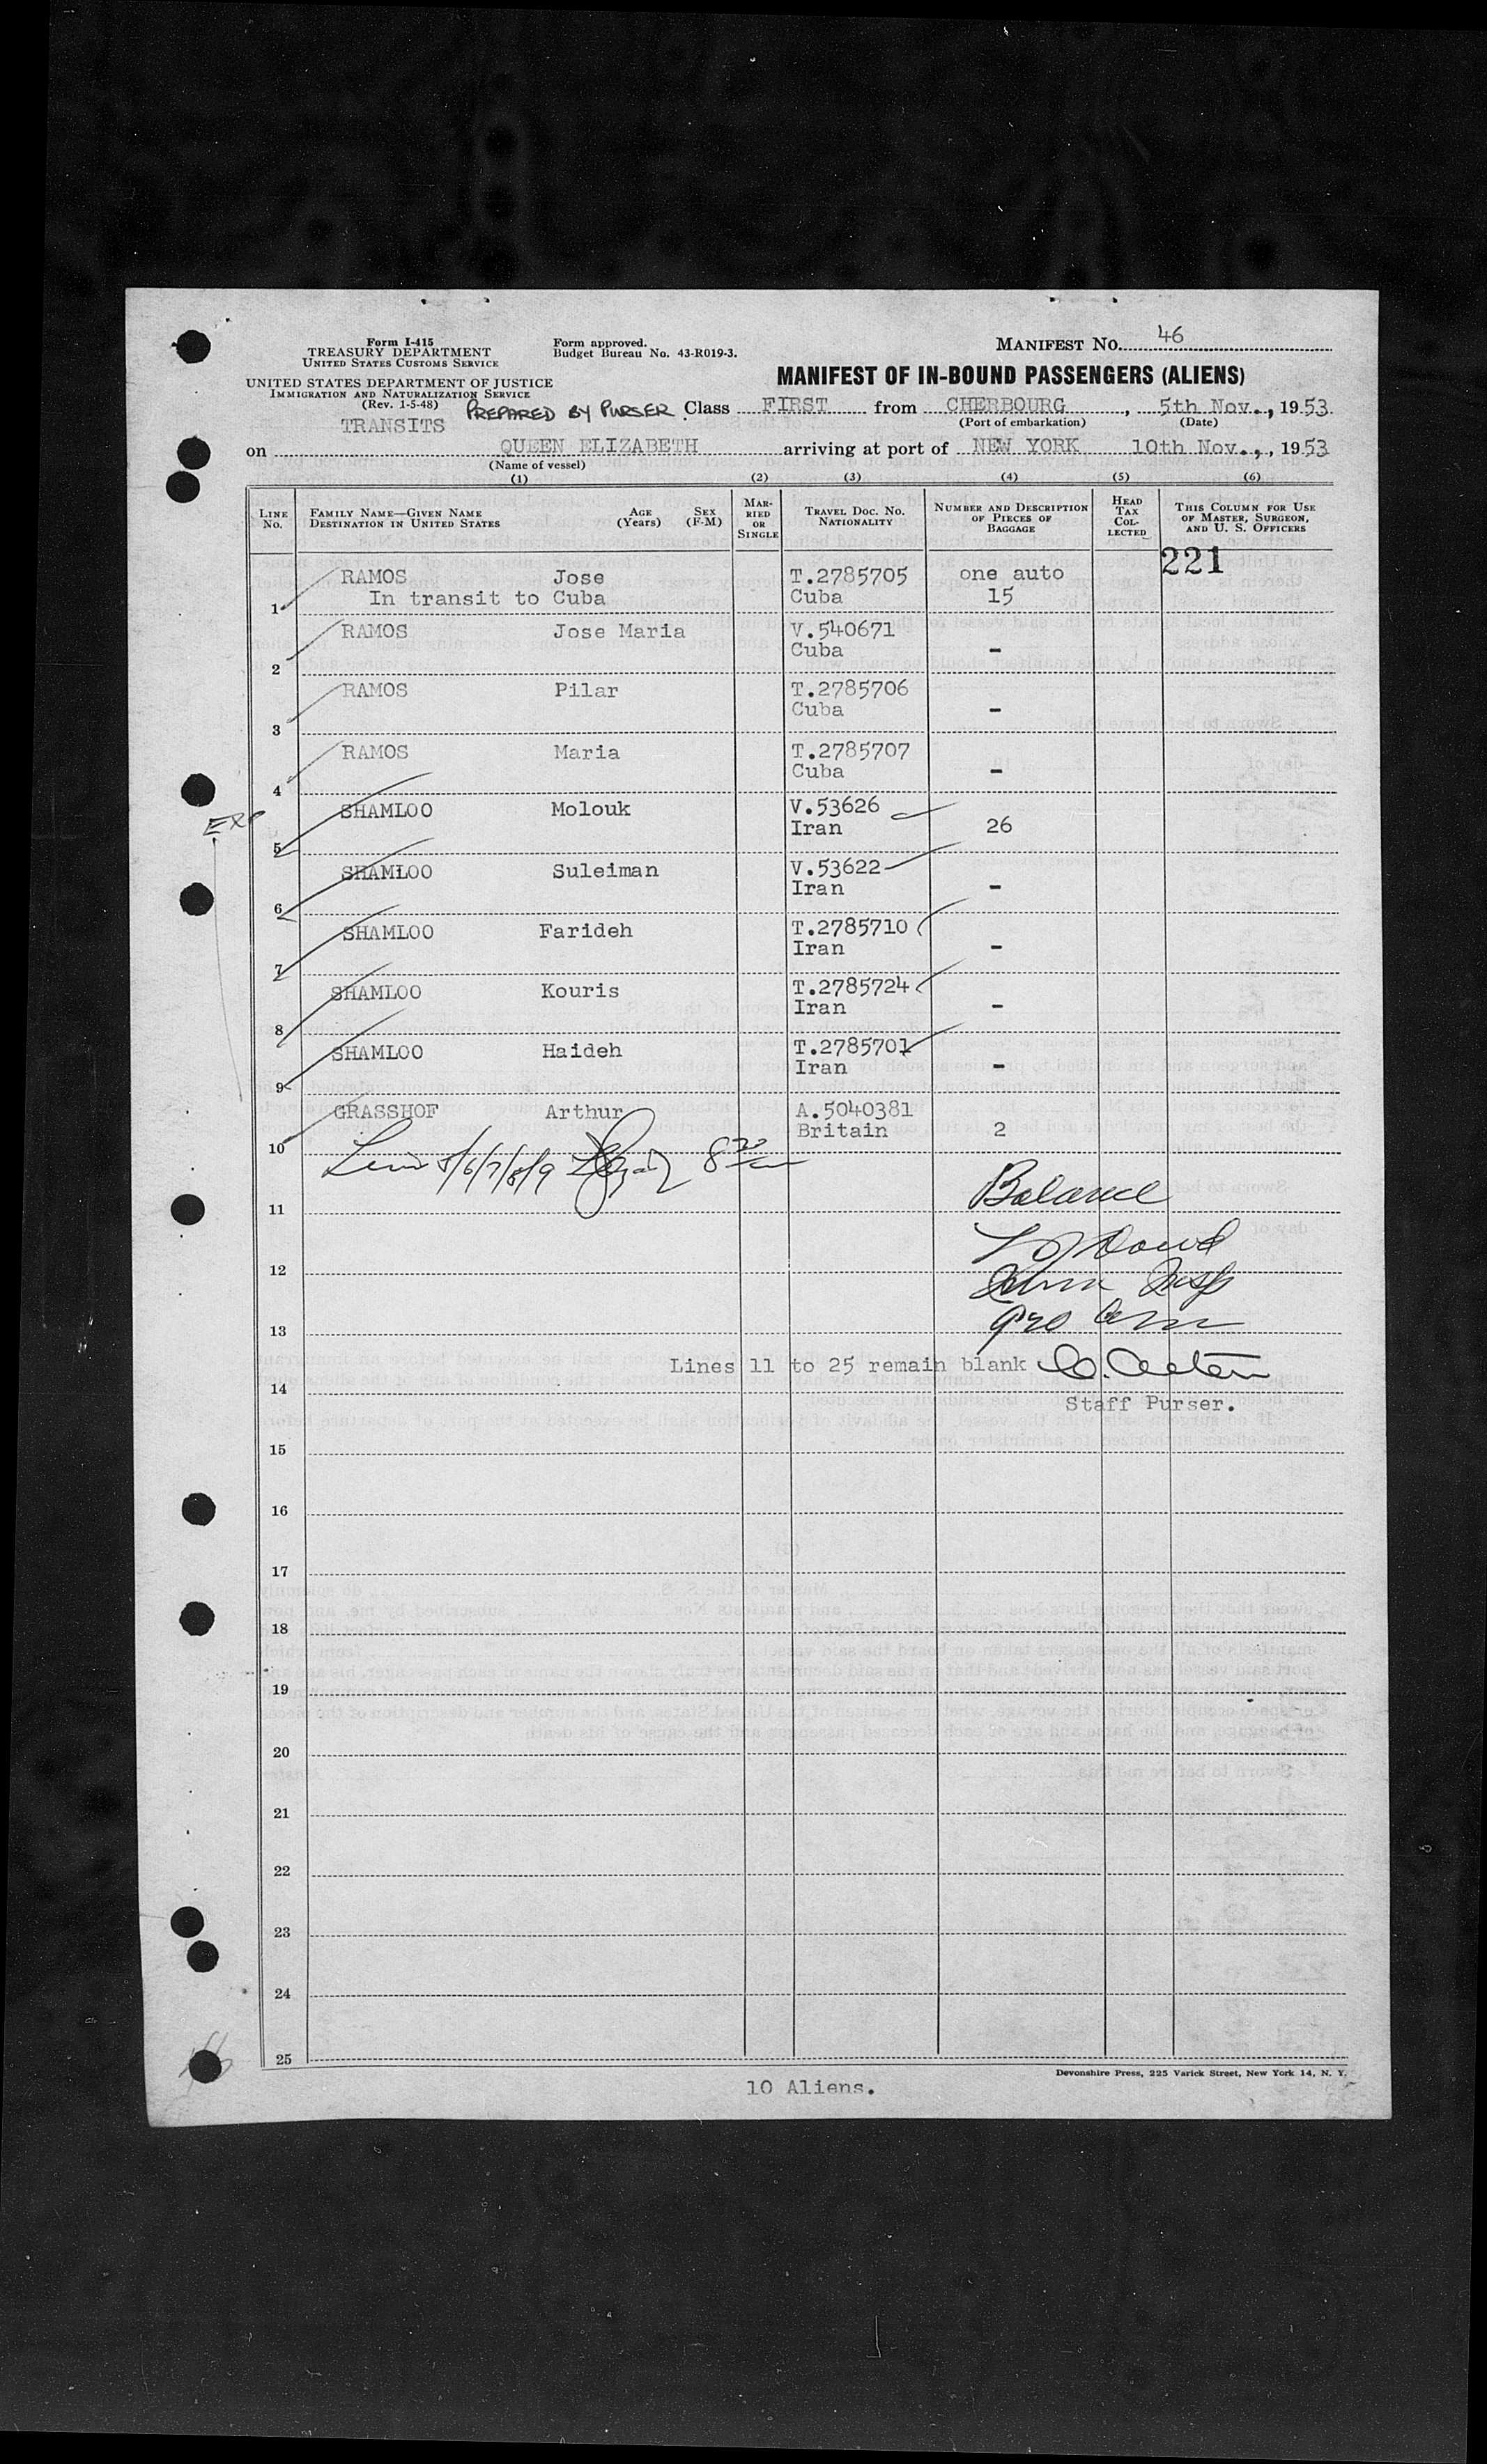 Form I-415
TREASURY DEPARTMENT
UNITED STATES CUSTOMS SERVICE
UNITED STATES DEPARTMENT OF JUSTICE
IMMIGRATION AND NATURALIZATION SERVICE
(Rev. 1-5-48)
Form approved.
Budget Bureau No. 43-R019-3.
MANIFEST NO. 46
MANIFEST OF IN-BOUND PASSENGERS (ALIENS)
TRANSITS PREPARED BY PURSER Class FIRST from CHERBOURG, 5th Nov., 1953
(Port of embarkation) (Date)
on QUEEN ELIZABETH arriving at port of NEW YORK 10th Nov., 1953
(Name of vessel)
(1) (2) (3) (4) (5) (6)
LINE NO. FAMILY NAME—GIVEN NAME DESTINATION IN UNITED STATES AGE (Years) SEX (F-M) MARRIED OR SINGLE TRAVEL DOC. NO. NATIONALITY NUMBER AND DESCRIPTION OF PIECES OF BAGGAGE HEAD TAX COLLECTED THIS COLUMN FOR USE OF MASTER, SURGEON, AND U. S. OFFICERS
221
RAMOS Jose T.2785705 one auto
1 In transit to Cuba Cuba 15
RAMOS Jose Maria V.540671
2 Cuba -
RAMOS Pilar T.2785706
3 Cuba -
RAMOS Maria T.2785707
4 Cuba -
SHAMLOO Molouk V.53626
5 Iran 26
SHAMLOO Suleiman V.53622
6 Iran -
SHAMLOO Farideh T.2785710
7 Iran -
SHAMLOO Kouris T.2785724
8 Iran -
SHAMLOO Haideh T.2785701
9 Iran -
GRASSHOF Arthur A.5040381
10 Britain 2
5/6/7/8/9
11 Balance
12
13
Lines 11 to 25 remain blank
14 Staff Purser.
15
16
17
18
19
20
21
22
23
24
25
Devonshire Press, 225 Varick Street, New York 14, N. Y.
10 Aliens.